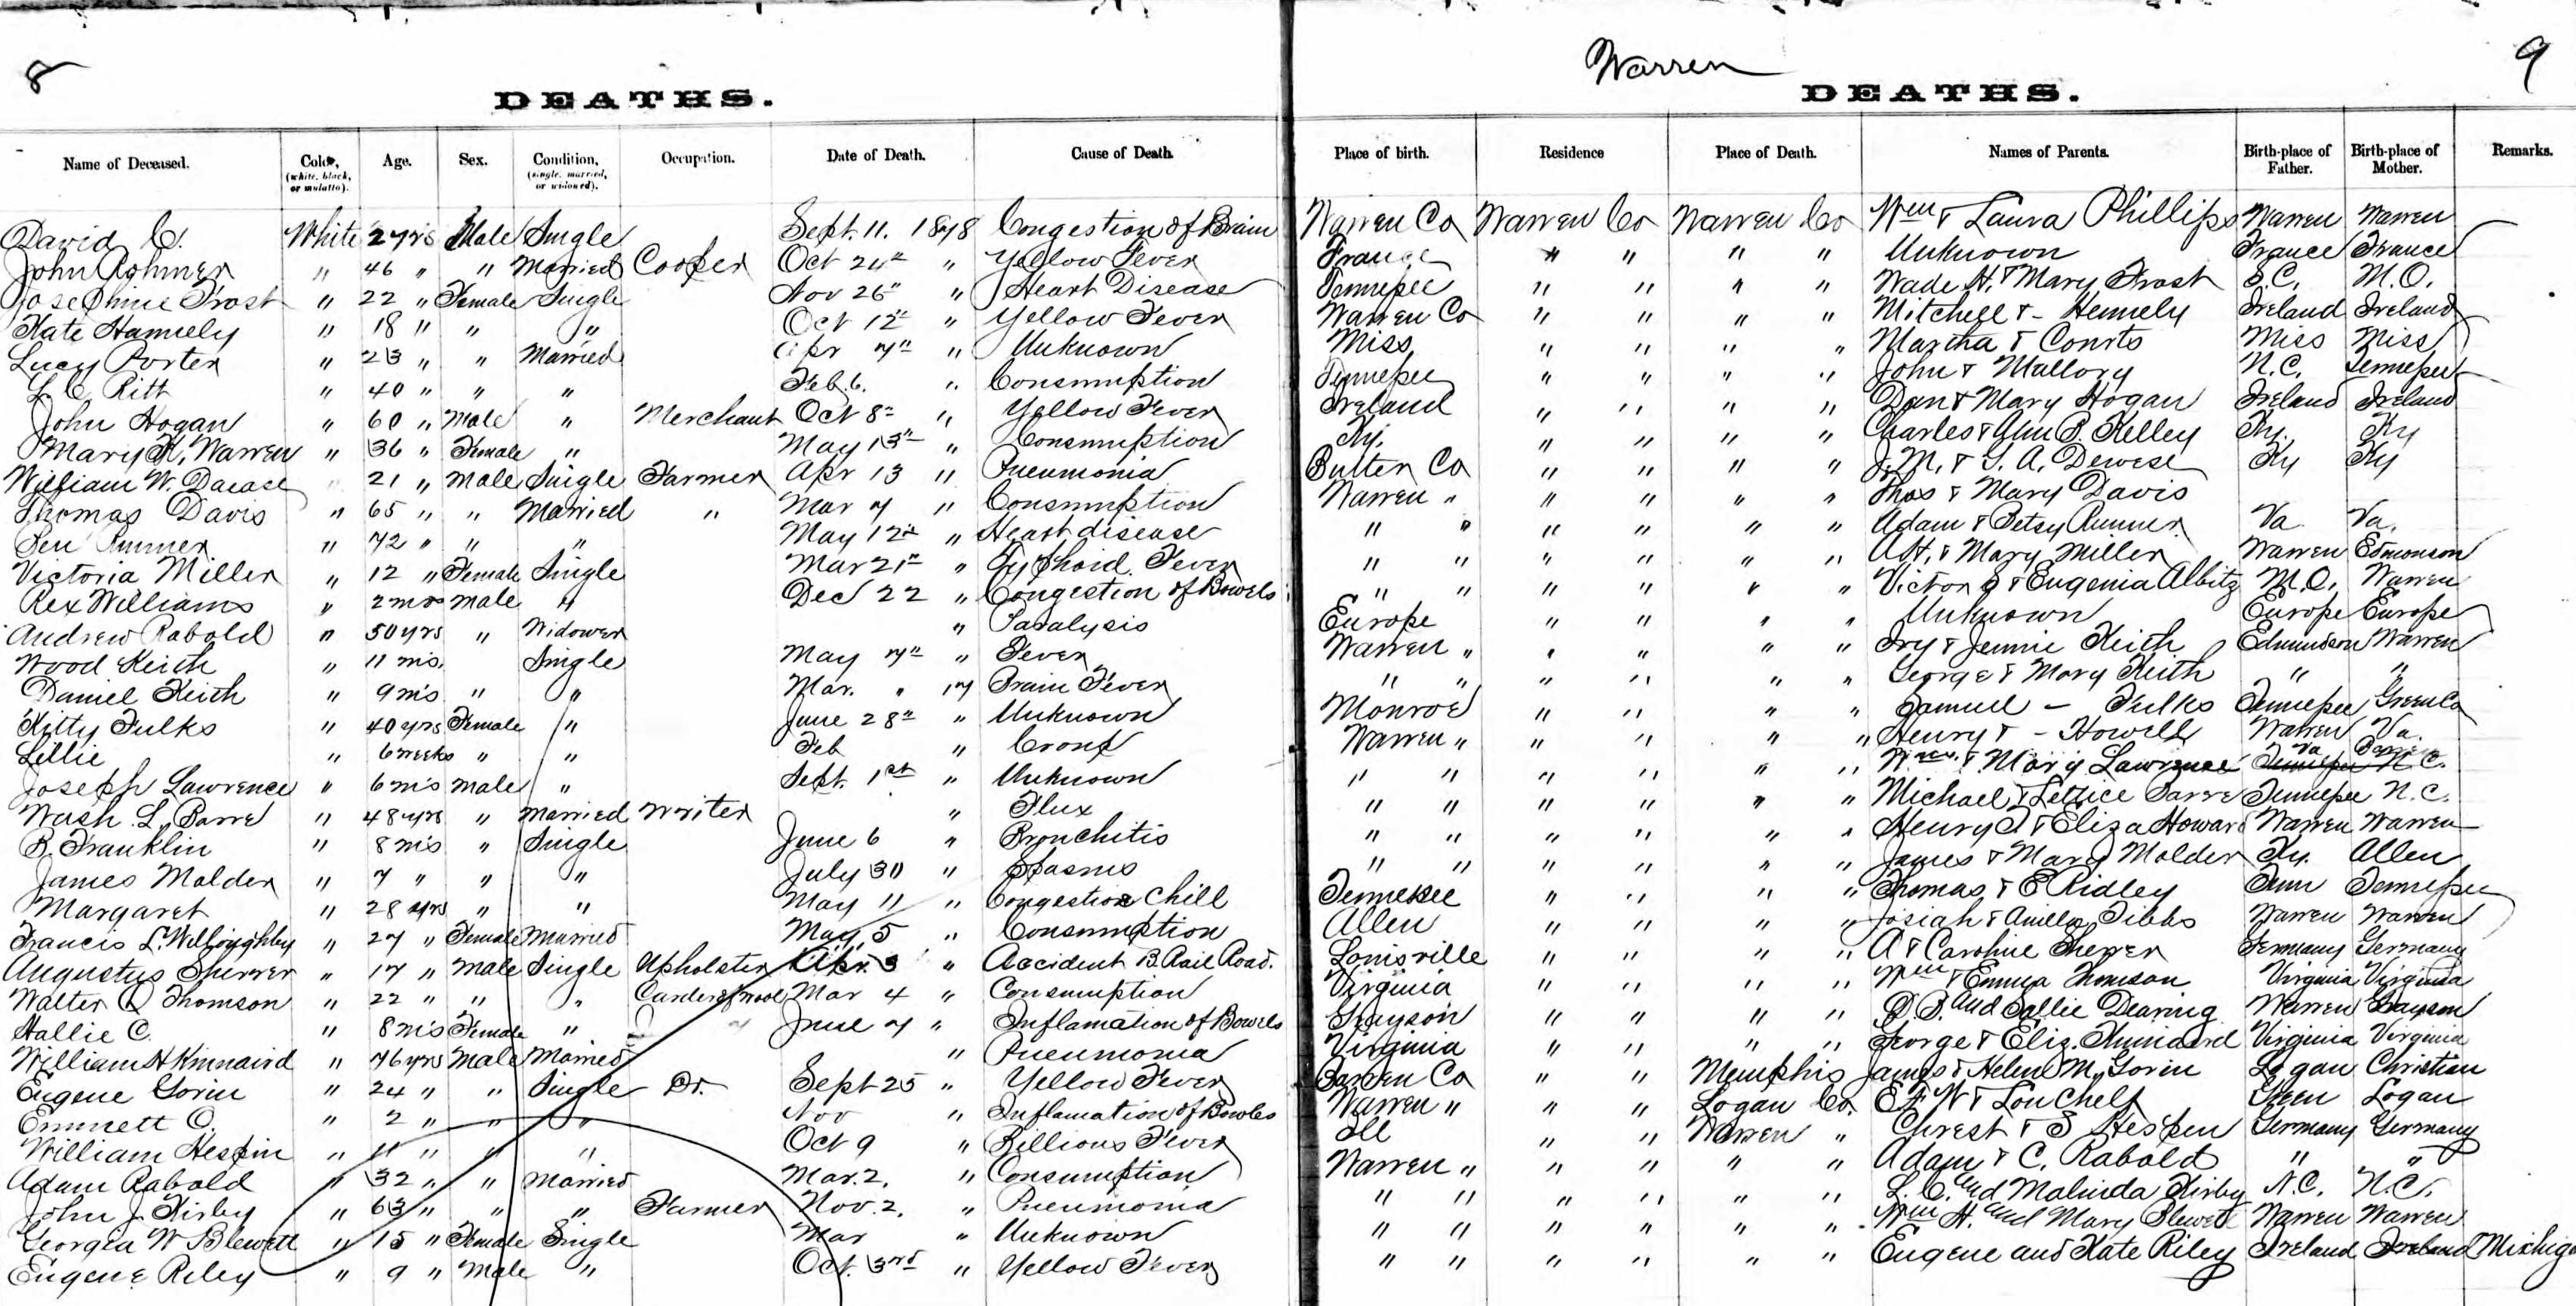 8
Warren
9
DEATHS.
DEATHS.
Name of Deceased. Color, (white, black, or mulatto). Age. Sex. Condition, (single, married, or widowed). Occupation. Date of Death. Cause of Death. Place of birth. Residence Place of Death. Names of Parents. Birth-place of Father. Birth-place of Mother. Remarks.
David C. White 2 yrs Male Single Sept. 11. 1878 Congestion of Brain Warren Co Warren Co Warren Co Wm & Laura Phillips Warren Warren
John Rohmer " 46 " " Married Cooper Oct 24th " Yellow Fever France " " " " Unknown France France
Josephine Frost " 22 " Female Single Nov 26" " Heart Disease Tennessee " " " " Wade H. & Mary Frost S.C. M.O.
Kate Hamely " 18 " " " Oct 12th " Yellow Fever Warren Co " " " " Mitchell & - Hennely Ireland Ireland
Lucy Porter " 23 " " Married Apr 7th " Unknown Miss " " " " Martha & Courts Miss Miss
L. C. Ritt " 40 " " " Feb. 6. " Consumption Tennessee " " " " John & Mallory N.C. Tennessee
John Hogan " 60 " Male " Merchant Oct 8th " Yellow Fever Ireland " " " " Dan & Mary Hogan Ireland Ireland
Mary K. Warren " 36 " Female " May 13th " Consumption Ky. " " " " Charles & Ann B. Kelley Ky. Ky
William W. " 21 " Male Single Farmer Apr 13 " Pneumonia Butler Co " " " " J. M. & S. A. Dewese Ky Ky
Thomas Davis " 65 " " Married " Mar 7 " Consumption Warren " " " " " Thos & Mary Davis
Ben Runner " 72 " " " May 12th " Heart disease " " " " " " Adam & Betsy Runner Va. Va.
Victoria Miller " 12 " Female Single Mar 21st " Typhoid Fever " " " " " " & Mary Miller Warren Edmonson
Rex Williams " 2 mos Male " Dec 22 " Congestion of Bowels " " " " " " Victor & Eugenia Albitz M.O. Warren
Andrew Rabold " 50 yrs " Widower " Paralysis Europe " " " " Unknown Europe Europe
Wood Keith " 11 m's. Single May 7th " Fever Warren " " " " " Ivy & Jennie Keith Edmundson Warren
Daniel Keith " 9 m's " " Mar. " 17 Brain Fever " " " " " " George & Mary Keith " "
Kitty Fulks " 40 yrs Female " June 28th " Unknown Monroe " " " " Samuel - Fulks Tennessee Green Co
Lillie " 6 weeks " " Feb " Croup Warren " " " " " Henry & - Howell Warren Va.
Joseph Lawrence " 6 m's Male " Sept. 1st " Unknown " " " " " " Wm. & Mary Lawrence Va Tennessee N.C.
Wash L. Barre " 48 yrs " Married Writer " Flux " " " " " " Michael & Lettice Barre Tennessee N.C.
B. Franklin " 8 m's " Single June 6 " Bronchitis " " " " " " Henry & Eliza Howard Warren Warren
James Molder " 7 " " " July 30 " Spasms " " " " " " James & Mary Molder Ky. Allen
Margaret " 28 yrs " " May 11 " Congestive Chill Tennessee " " " " Thomas & E Ridley Tenn Tennessee
Francis L. Willoughby " 27 " Female Married May 5 " Consumption Allen " " " " Josiah & Tibbs Warren Warren
Augustus Sherrer " 17 " Male Single Upholster Apr. 3 " Accident B. Rail Road. Louisville " " " " A & Caroline Sherrer Germany Germany
Walter Thomson " 22 " " " Carder of wool Mar 4 " Consumption Virginia " " " " Wm & Emma Thomson Virginia Virginia
Hallie C. " 8 m's Female " June 7 " Inflamation of Bowels Grayson " " " " and Sallie Dearing Warren Grayson
William H Kinnaird " 76 yrs Male Married " Pneumonia Virginia " " " " George & Eliz. Kinnaird Virginia Virginia
Eugene Gorin " 24 " " Single Dr. Sept 25 " Yellow Fever Barren Co " " Memphis James & Helen M. Gorin Logan Christian
Emmett O. " 2 " " " Nov " Inflamation of Bowles Warren " " " Logan Co. & Lou Chelf Green Logan
William Hespin " 11 " " " Oct 9 " Billious Fever Ill " " Warren " Chrest & S Hespen Germany Germany
Adam Rabold " 32 " " Married Mar. 2. " Consumption Warren " " " " " Adam & C. Rabold " "
John J. Kirby " 63 " " " Farmer Nov. 2. " Pneumonia " " " " " " L. C. and Malinda Kirby N.C. N.C.
Georgea W Blewett " 15 " Female Single Mar " Unknown " " " " " " Wm H. and Mary Blewett Warren Warren
Eugene Riley " 9 " Male " Oct. 3rd " Yellow Fever " " " " " " Eugene and Kate Riley Ireland Ireland Michiga